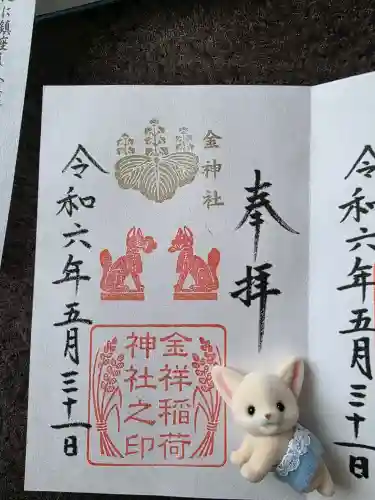 令和六年五月三十一日
奉拝
金神社
金祥稲荷
神社之印
令和六年五月三十一日